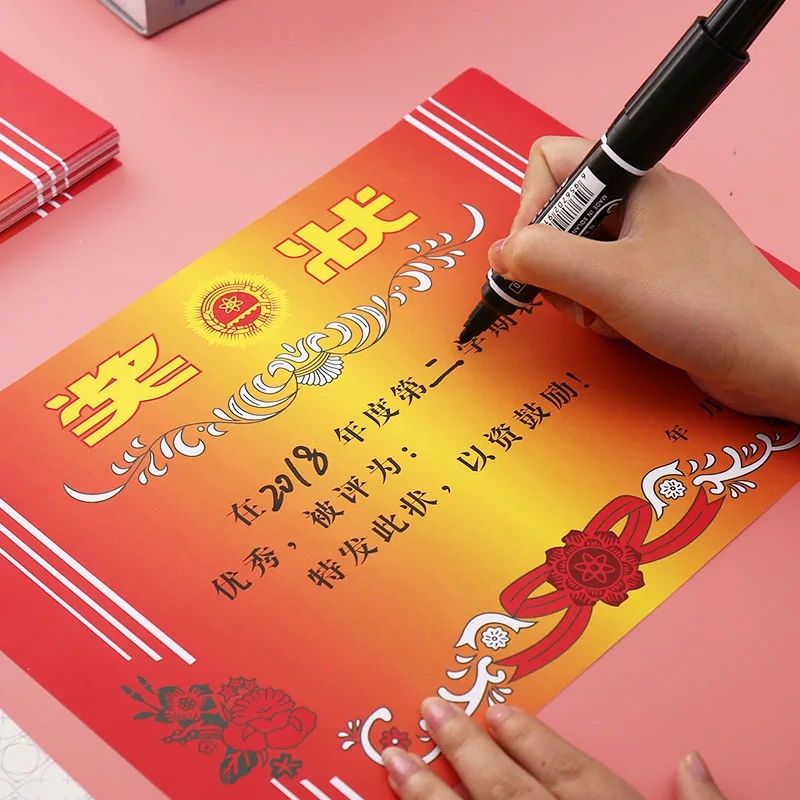 奖状
在2018年度第二学期表
优秀，被评为：
特发此状，以资鼓励！
年 月
MADE IN